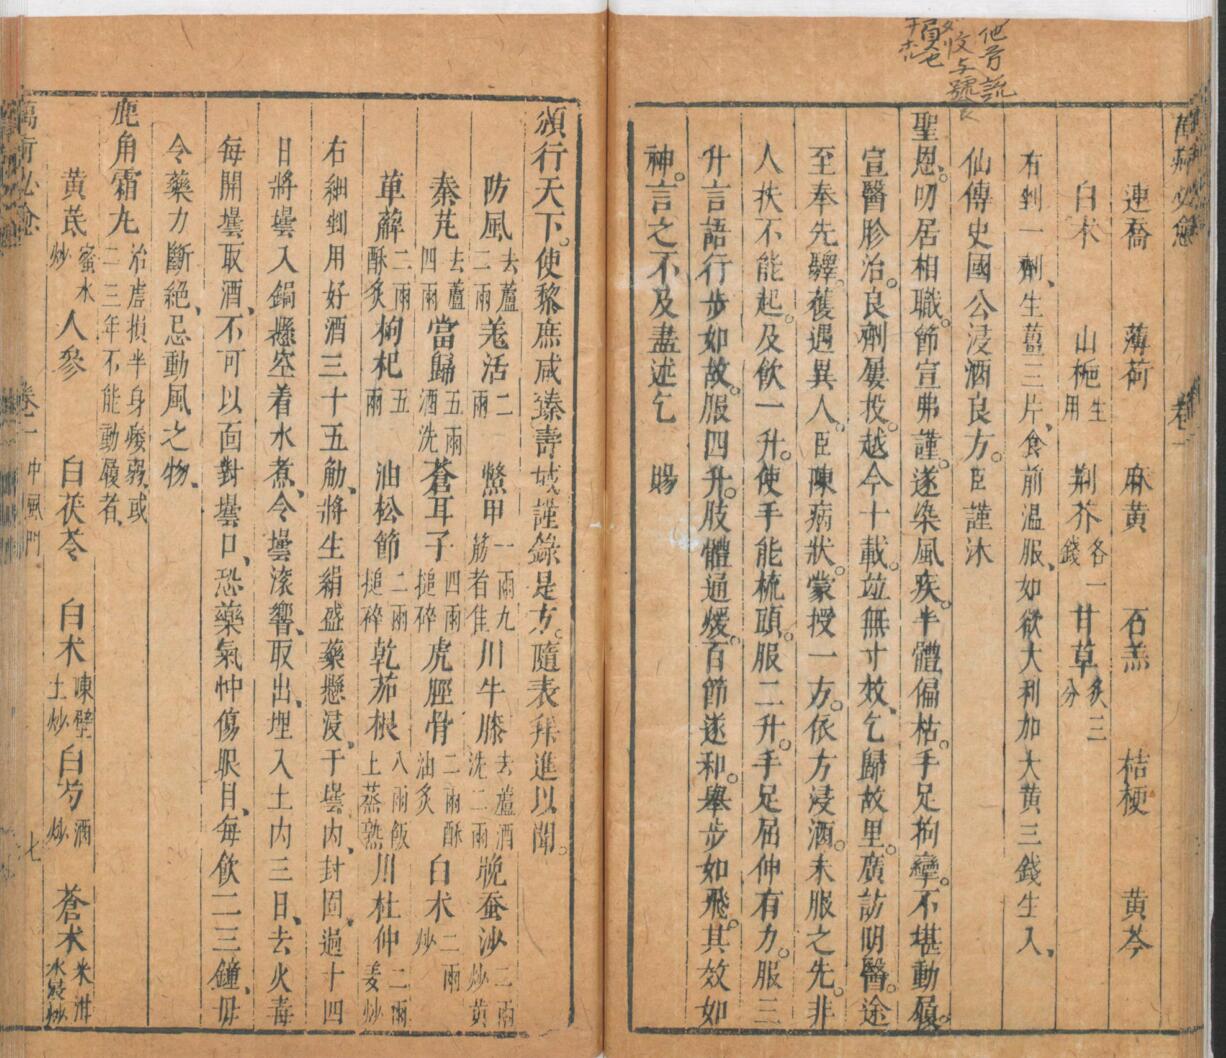 連喬 薄荷 麻黄 石羔 桔梗 黄芩
白术 山梔生用 荆芥各一錢 甘草炙三分
右剉一劑、生薑三片、食前溫服、如欲大利加大黄三錢生入、
仙傳史國公浸酒良方。臣謹沐
聖恩、叨居相職。節宣弗謹。遂染風疾。半體偏枯。手足拘攣。不堪動履。
宣醫胗治。良劑屢投。越今十載。竝無寸效、乞歸故里。廣訪明醫。途
至奉先驛。獲遇異人。臣陳病狀。蒙授一方。依方浸酒。未服之先。非
人扶不能起。及飲一升。使手能梳頭。服二升。手足屈伸有力。服三
升言語行步如故。服四升。肢體通煖。百節遂和。舉步如飛。其效如
神。言之不及盡述乞 賜
頒行天下。使黎庶咸臻壽域謹錄是方。隨表拜進以聞。
防風去蘆二兩 羗活二兩 鱉甲一兩九筋者佳 川牛膝去蘆酒洗二兩 晚蚕沙二兩炒黄
秦芃去蘆四兩 當歸五兩酒洗 蒼耳子四兩搥碎 虎脛骨二兩酥油炙 白术二兩炒
萆薢二兩酥炙 枸杞五兩 油松節二兩搥碎 乾茄根八兩飯上蒸熟 川杜仲二兩姜炒
右細剉用好酒三十五觔、將生絹盛藥懸浸、于壜內、封固、過十四
日將壜入鍋懸空着水煮、令壜滚響、取出、埋入土内三日、去火毒
每開壜取酒、不可以面對壜口、恐藥氣冲傷眼目、每飲二三鐘、毋
令藥力斷絕、忌動風之物、
鹿角霜丸治虛損半身痠弱、或二三年不能動履者、
黄芪蜜水炒 人參 白茯苓 白术陳壁土炒 白芍酒炒 蒼术米泔水浸炒
卷一 中風門 七